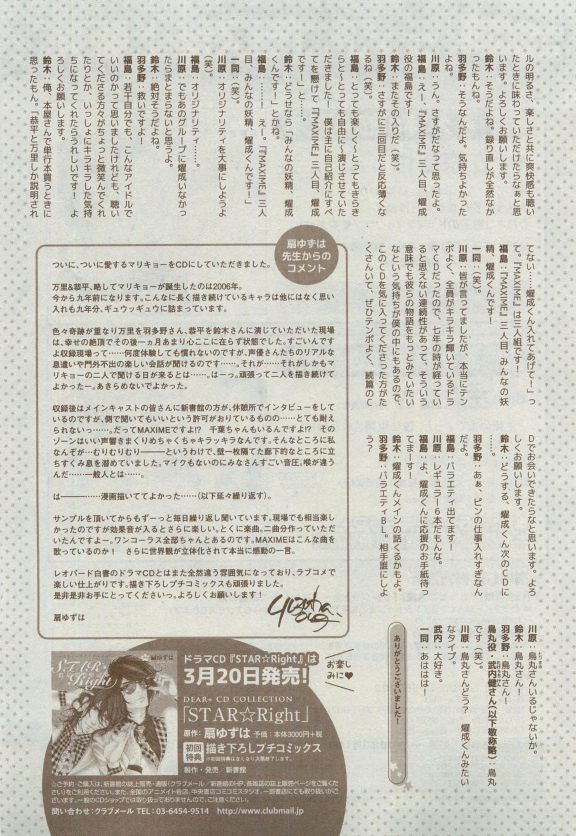 ルの明るさ、楽しさと共に爽快感も聴い
たときに味わっていただけたらなぁと思
います。よろしくお願いします。
鈴木：そうだよね。録り直しが全然なか
ったもんね。
羽多野：そうなんだよ。気持ちよかった
よね。
川原：うん。さすがだなって思ったよ。
福島：えー、『MAXIME』三人目、燿成
役の福島です！
鈴木：またその入りだ（笑）。
羽多野：さすがに三回目だと反応薄くな
るね（笑）。
福島：とっても楽しく！とってもきらき
らと〜とっても自由に！演じさせていた
だきました！ 僕は主に自己紹介にすべ
てを懸けて『「MAXIME』三人目、燿成
です！」と……。
鈴木：どうせなら「みんなの妖精、燿成
くんです！」とかね。
福島：……！ えー、『MAXIME』三人
目、みんなの妖精、燿成くんです！
一同：（笑）。
川原：オリジナリティを大事にしようよ
（笑）。
福島：オリジナリティ……。
川原：でもあのグループに燿成いなかっ
たらまとまらないと思うよ。
鈴木：絶対そうだよね。
羽多野：救いですよ！
福島：若干自分でも、こんなアイドルで
いいのかって思いましたけれども、聴い
てくださる方々がちょっと微笑んでくれ
たりとか、いっしょにキラキラした気持
ちになってくれたらうれしいです！ よ
ろしくお願いします。
鈴木：俺、本屋さんで単行本買うときに
思ったもん。「恭平と万里しか説明され
てない……燿成くん入れてあげて！」っ
て。『MAXIME』は三人組です！
福島：『MAXIME』三人目、みんなの妖
精、燿成くんです！
川原：皆が言ってましたが、本当にテン
ポよく、全員がキラキラ輝いているドラ
マCDだったので、七年の時が経ってい
ると思えない連続性があって、そういう
意味でも彼らの物語をもっとみていたい
なという気持ちが僕の中にもあるので、
このCDを気に入ってくださった方がた
くさんいて、ぜひテンポよく、続篇のC
Dでお会いできたらなと思います。よろ
しくお願いします。
鈴木：どうする、燿成くん次のCDに
羽多野：あぁ、ピンの仕事入れすぎなん
だよ。
福島：バラエティ出てます！
川原：レギュラー6本だもんな。
福島：よ、燿成くんに応援のお手紙待っ
てまーす！
鈴木：燿成くんメインの話くるかもよ。
羽多野：バラエティBL。相手誰にしよ
う？
川原：烏丸さんいるじゃないか。
鈴木：烏丸さん！
羽多野：烏丸さん！
烏丸役・武内健さん（以下敬称略）：烏丸
です（笑）。
川原：烏丸さんどう？ 燿成くんみたい
なタイプ。
武内：大好き。
一同：あははは！
ありがとうございました！
扇ゆずは
先生からの
コメント
ついに、ついに愛するマリキョーをCDにしていただきました。
万里&恭平、略してマリキョーが誕生したのは2006年。
今から九年前になります。こんなに長く描き続けているキャラは他にはなく思い
入れも九年分、ギュウッギュウに詰まっています。
色々奇跡が重なり万里を羽多野さん、恭平を鈴木さんに演じていただいた現場
は、幸せの絶頂でその後一ヵ月あまり心ここに在らず状態でした。すごいんです
よ収録現場って……何度体験しても慣れないのですが、声優さんたちのリアルな
息遣いや門外不出の楽しい会話が聞けるのです……。それが……それがしかもマ
リキョーの二人で聞ける日が来るとは……。はーっ。頑張って二人を描き続けて
よかったー。あきらめないでよかった。
収録後はメインキャストの皆さんに新書館の方が、休憩所でインタビューをして
いるのですが、側で聞いてもいいという許可がおりているものの……とても耐え
られないっ……。だってMAXIMEですよ!? 千葉ちゃんもいるんですよ!? その
ゾーンはいい声響きまくりめちゃくちゃキラッキラなんです。そんなところに私
なんぞが…むりむりむり――というわけで、壁一枚隔てた廊下的なところに立
ちすくみ息を潜めていました。マイクもないのにみなさんすごい音圧。喉が違う
んだ……一般人とは……。
は――――漫画描いててよかった……（以下延々繰り返す）。
サンプルを頂いてからもずーっと毎日繰り返し聞いています。現場でも相当楽し
かったのですが効果音が入るとさらに楽しい。とくに楽曲。二曲分作っていただ
いたんですよー。ワンコーラス全部ちゃんとあるのです。MAXIMEはこんな曲を
歌っているのか！ さらに世界観が立体化されて本当に感動の一言。
レオパード白書のドラマCDとはまた全然違う雰囲気になっており、ラブコメで
楽しい仕上がりです。描き下ろしプチコミックスも頑張りました。
是非是非お手にとってくださいっ。よろしくお願いします！
扇ゆずは
ドラマCD『STAR☆Right』は
3月20日発売！
お楽しみに♥
DEAR+ CD COLLECTION
「STAR☆Right」
原作：扇ゆずは 予価：本体3000円+税
初回特典 描き下ろしプチコミックス
※初回特典はなくなり次第終了します。
製作・発売：新書館
STAR☆Right
扇ゆずは
☆ご予約・ご購入は、新書館の誌上販売・通販（クラブメール／新書館のHP、各雑誌の誌上販売ページをご覧くださ
い）をご利用ください。また、全国のアニメイト各店、中央書店コミコミスタジオ、一部書店にても取り扱いがござ
います。一般のCDショップでは取り扱っておりませんので、ご注意ください。
問い合わせ：クラブメール TEL：03-6454-9514 http://www.clubmail.jp